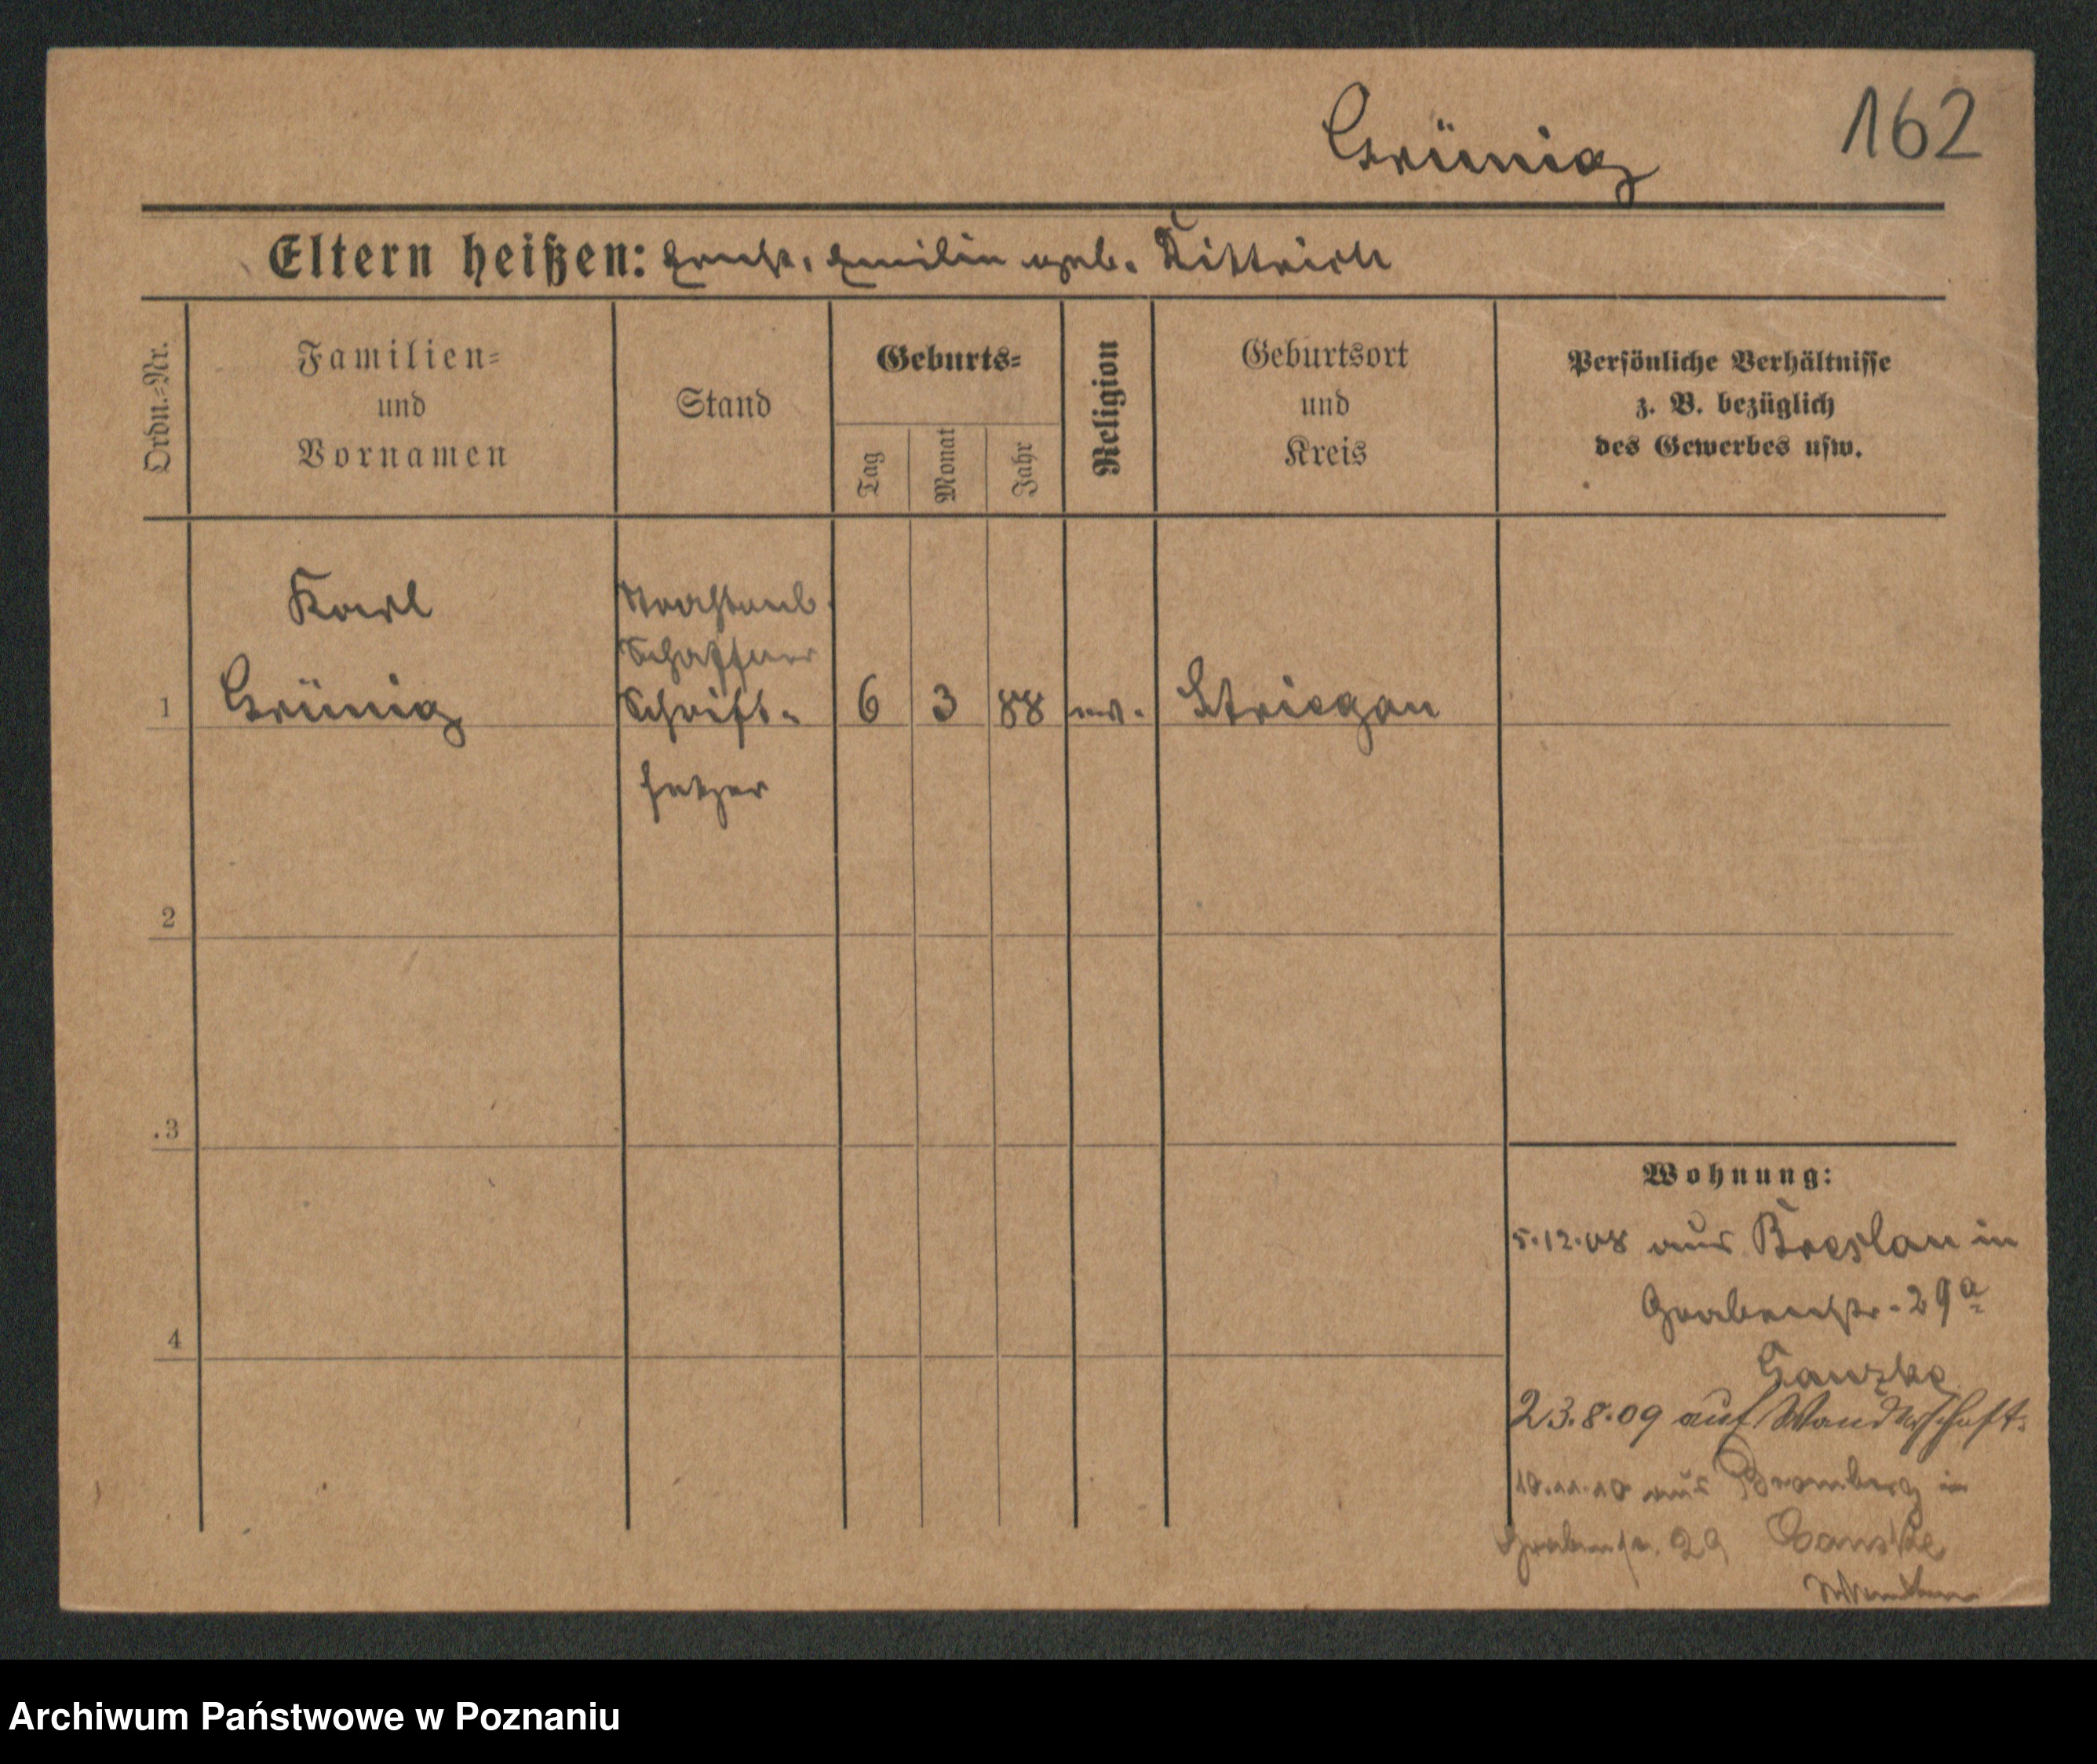 Grünig 162
Eltern heißen: Ernst, Emilie geb. Dittrich
Ordn.=Nr.
Familien=
und
Vornamen
Stand
Geburts=
Tag
Monat
Jahr
Religion
Geburtsort
und
Kreis
Persönliche Verhältnisse
z. B. bezüglich
des Gewerbes usw.
Karl
Schaffner
1 Grünig Schrift- 6 3 88 ev. Striegau
setzer
2
3
4
Wohnung:
5.12.08 aus Breslau in
Grabenstr. 29a
Ganzke
23.8.09 auf Wanderschaft.
10.11.10 aus Bromberg in
Grabenstr. 29 Ganske
Archiwum Państwowe w Poznaniu